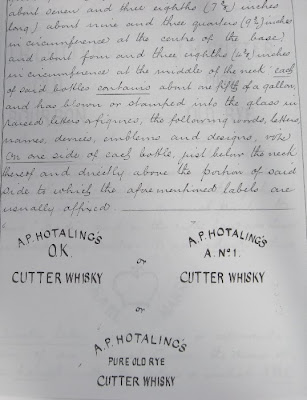 about seven and three eighths (7 3/8) inches
long) about nine and three quarters (9 3/4) inches
in circumference at the centre of the base)
and about four and three eighths (4 3/8) inches
in circumference at the middle of the neck each
of said bottles contains about one fifth of a gallon,
and has blown or stamped into the glass in
raised letters or figures, the following words, letters,
names, devices, emblems and designs,
On one side of each bottle, just below the neck
thereof and directly above the portion of said
side to which the aforementioned labels are
usually affixed
A.P. HOTALING'S A.P. HOTALING'S
O.K. or A. No 1.
CUTTER WHISKY CUTTER WHISKY
or
A.P. HOTALING'S
PURE OLD RYE
CUTTER WHISKY